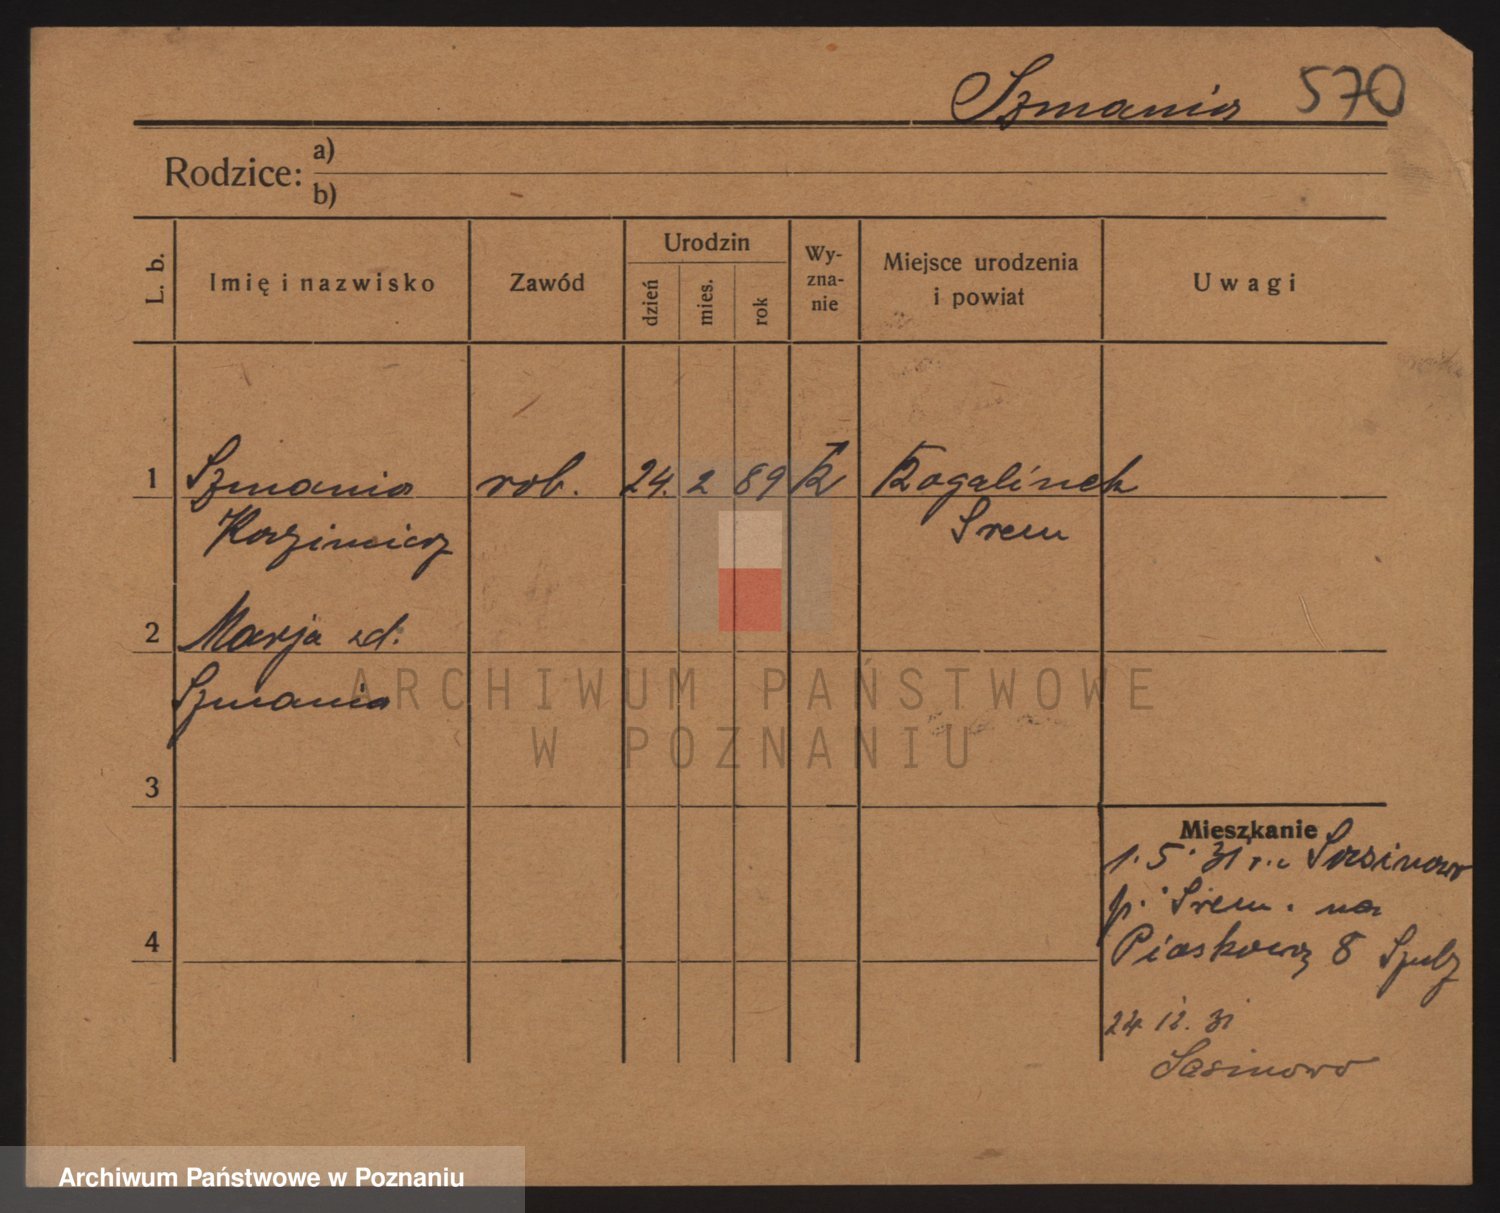 Szmania 570
Rodzice: a)
b)
L. b. Imię i nazwisko Zawód Urodzin dzień mies. rok Wy-zna-nie Miejsce urodzenia i powiat Uwagi
1 Szmania rob. 24. 2 89 Rogalinek
Kazimierz Śrem
2 Marja zd.
Szmania
ARCHIWUM PAŃSTWOWE
W POZNANIU
3
Mieszkanie
1. 5. 31 r. z Sasinowo
p. Śrem. na
4 Piaskową 8
24. 12. 31
Sasinowo
Archiwum Państwowe w Poznaniu